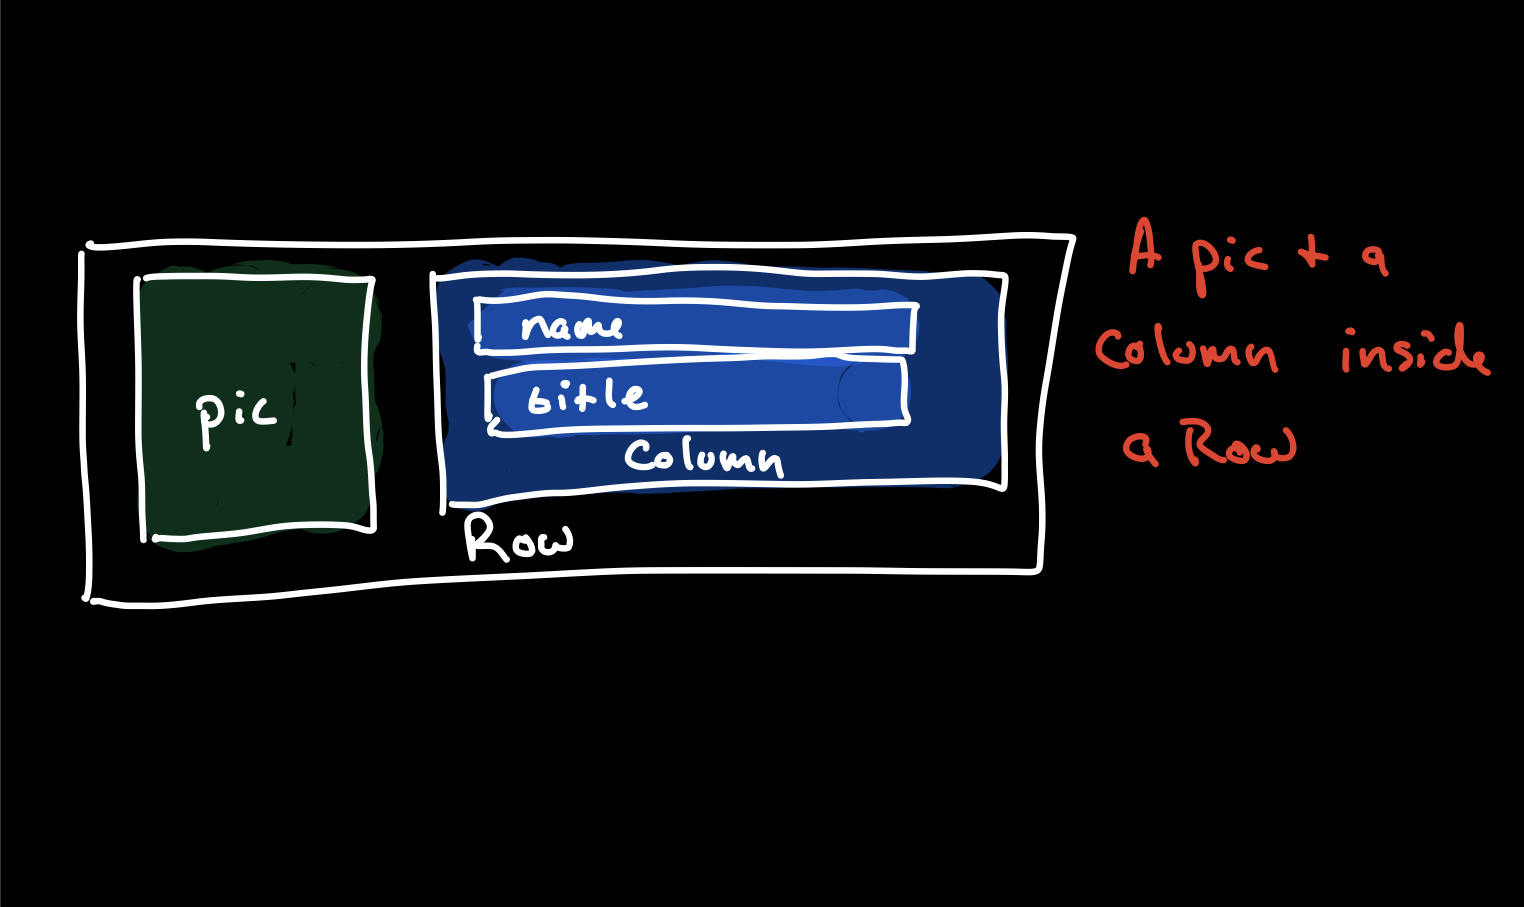 pic
name
title
Column
Row
A pic + a
Column inside
a Row